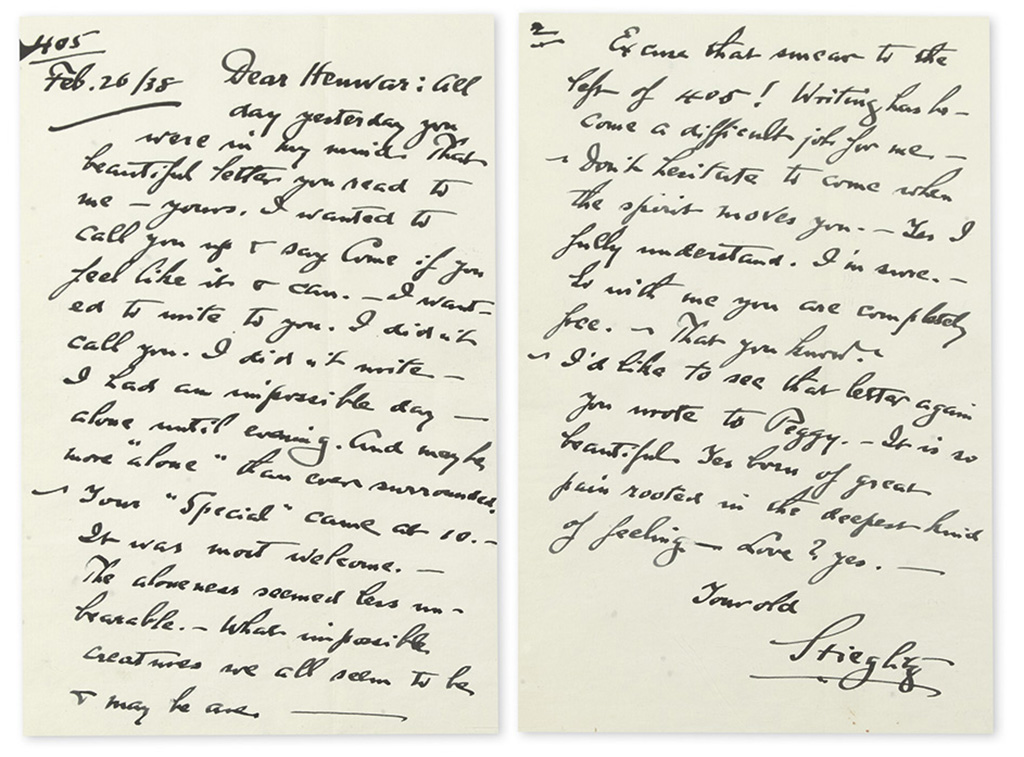 405
Feb. 20/38
Dear Henwar: All
day yesterday you
were in my mind. That
beautiful letter you read to
me — yours. I wanted to
call you up & say Come if you
feel like it & can. — I want-
ed to write to you. I didn't
call you. I didn't write —
I had an impossible day —
alone until evening. And maybe
more "alone" than ever surrounded.
~ Your "Special" came at 10. —
It was most welcome. —
The aloneness seemed less un-
bearable. — What impossible
creatures we all seem to be
& may be are. —
2
Excuse that smear to the
left of 405! Writing has be-
come a difficult job for me. —
~ Don't hesitate to come when
the spirit moves you. — Yes I
fully understand. I'm sure. —
So with me you are completely
free. ~ That you know. ~
~ I'd like to see that letter again
you wrote to Peggy. — It is so
beautiful. Yes born of great
pain rooted in the deepest kind
of feeling — Love? yes. —
Your old
Stieglitz